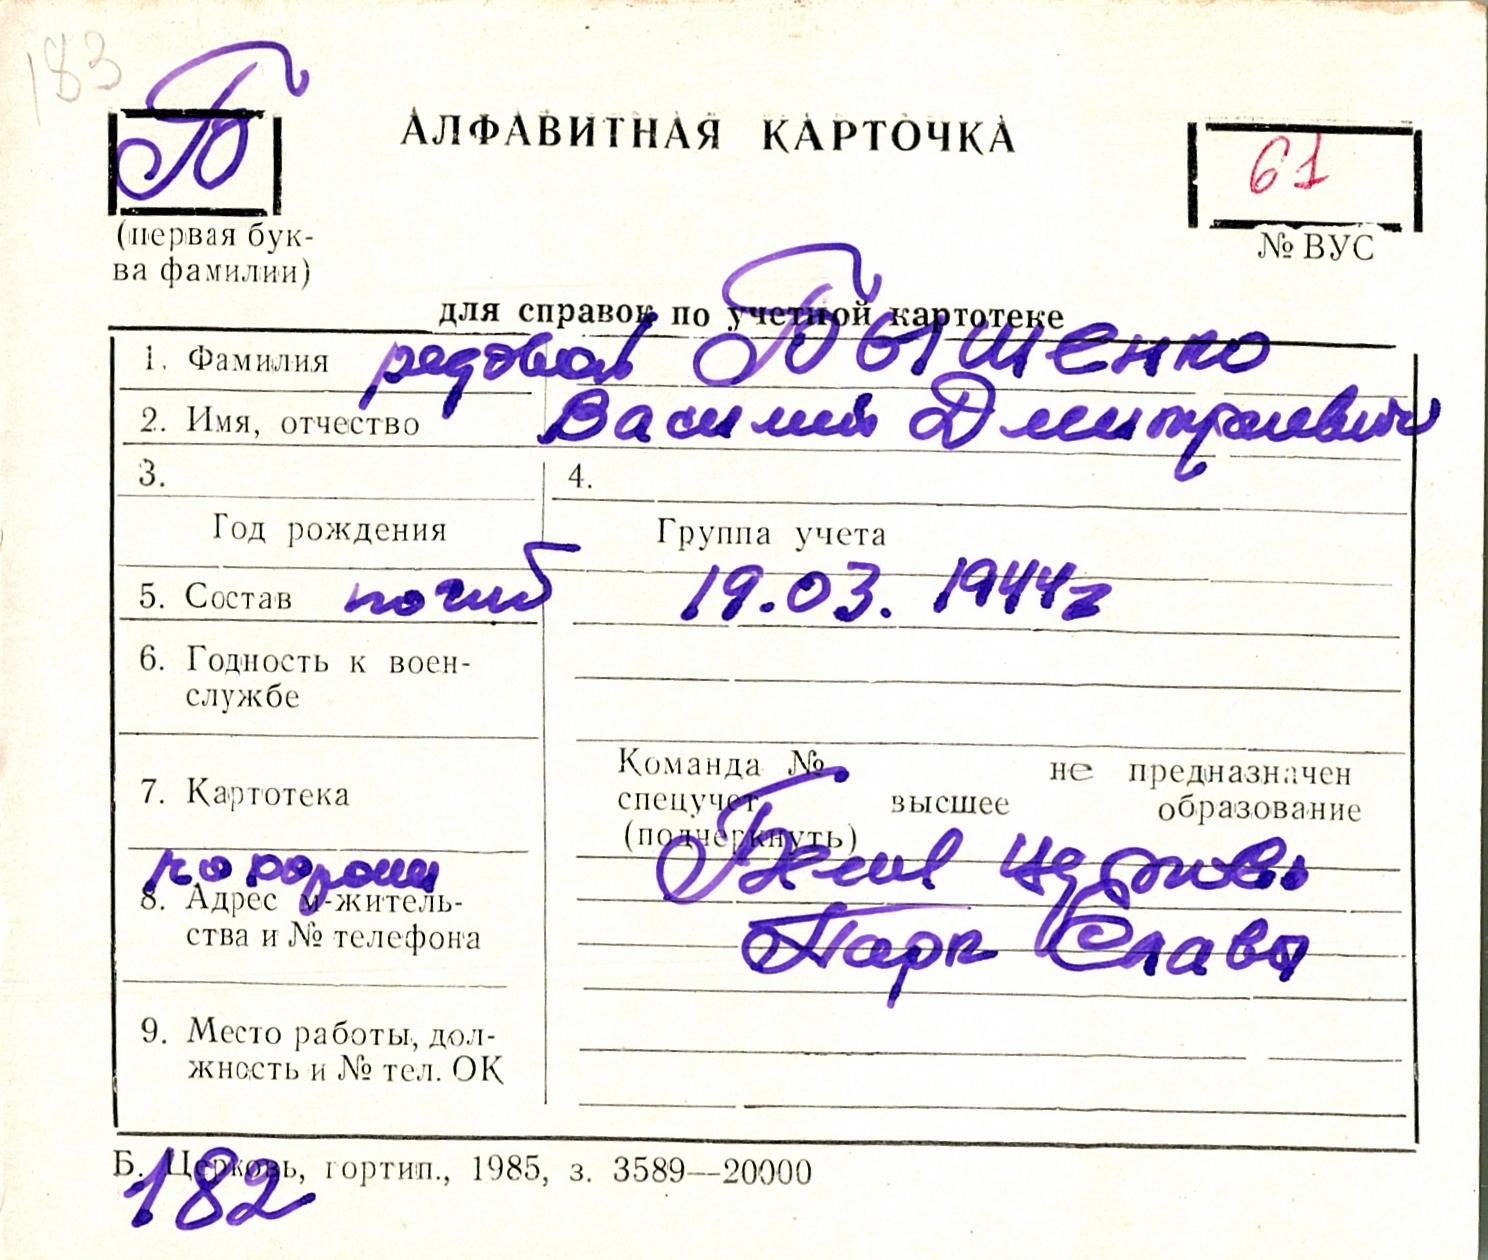 183
Б
АЛФАВИТНАЯ КАРТОЧКА
61
(первая бук-
ва фамилии)
№ ВУС
для справок по учетной картотеке
1. Фамилия рядовой Бышенко
2. Имя, отчество Василий Дмитриевич
3. 4.
Год рождения Группа учета
5. Состав погиб 19.03.1944г
6. Годность к воен-
службе
Команда № не предназначен
7. Картотека
спецучет высшее образование
(подчеркнуть)
похорон Белая Церковь
8. Адрес м-житель-
ства и № телефона
Парк Славы
9. Место работы, дол-
жность и № тел. ОК
Б. Церковь, гортип., 1985, з. 3589—20000
182